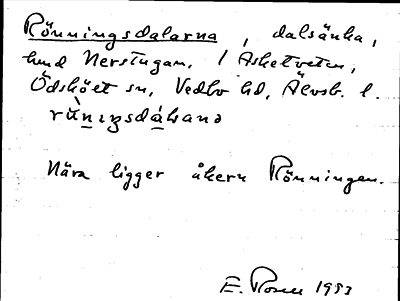 Rönningsdalarna, dalsänka,
hmd Nerstugan, 1 Asketveten,
Ödskölt sn, Vedbo hd, Älvsb. l.
Nära ligger åkern Rönningen.
E. Rosen 1953